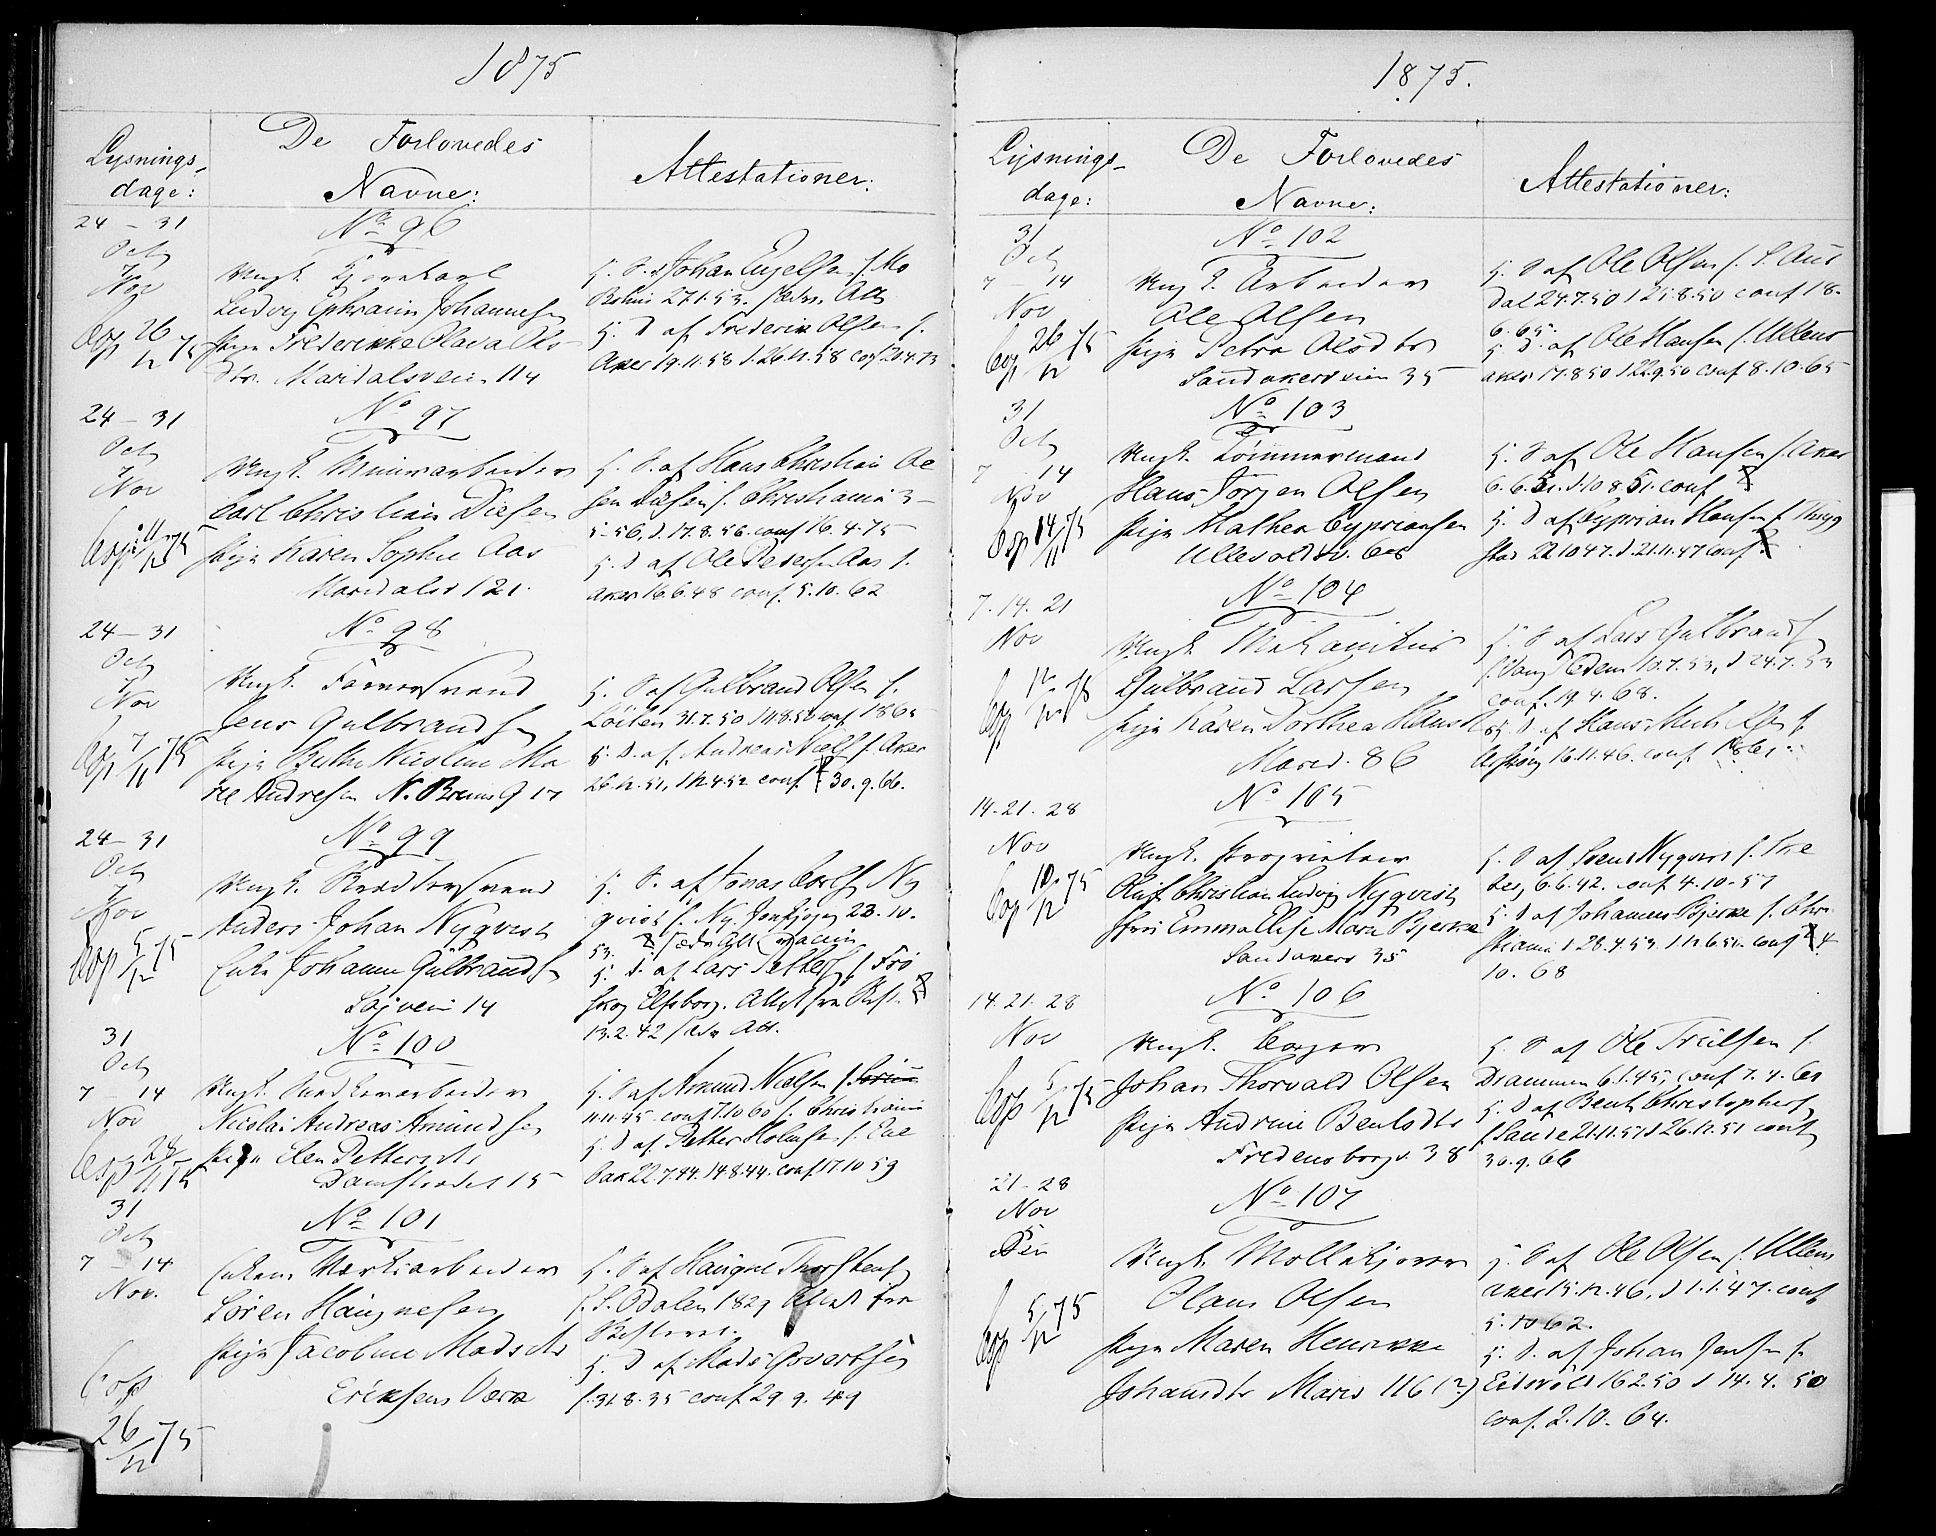 1875
Lysnings-
dage:
De Forlovedes
Navne:
Attestationer:
24 - 31
Oct
7
Nov
Cop 26/12 75
No 96
Ungk.
Ludvig Ephraim Johannesen
Pige Frederikke Olava Ols
dtr. Maridalsveien 114
f. S. af Johan Engelsen f. Mo
27.1.53. Att
f. D af Frederik Olsen f.
Aker 19.11.58 d. 26.12.58 conf 20.4.73
24 - 31
Oct
7
Nov
Cop 11/12 75
No 97
Ungk. Murarbeider
Carl Christian Diesen
Pige Karen Sophie Aas
Maridalsv 121.
f. S. af Hans Christian Ole
sen Diesen f. Christiania 3-
5-56, d. 17.8.56. conf 16.4.75
f. D af Ole Peders. Aas f.
Aker 16.6.48 conf. 5.10.62
24 - 31
Oct
7
Nov
Cop 7/11 75
No 98
Ungk. Farversvend
Jens Gulbrandsen
Pige Berthe Nicoline Ma
rie Andresen N. 17
f. S af Gulbrand Olsen f.
Löiten 31.7.50 d 11.8.50 conf 1865
f. D. af Andreas Niels f. Aker
26.12.51, d 12.4.52 conf 30.9.66.
24 - 31
Oct
7
Nov
Cop 5/12 75
No 99
Ungk.
Anders Johan Nyqvist
Enke Johanne Gulbrandsen
14
f. S. af Jonas Ny
qvist f. Ny 23.10.
53.
f. D. af Lars Petters f. Frö
skog Elfsborg.
13.2.42 Att.
31
Oct
7 - 14
Nov
Cop 28/11 75
No 100
Ungk.
Nicolai Andreas Amundsen
Pige Elen Pettersdtr
Damstrædet 15
f. S af Amund Nielsen f.
11.11.45 conf 7.10 60 f. Christiania
f. D af. Petter Holmsen f. Ene
bak 22.7.44. 14.8.44. conf 17.10 59
31
Oct
7 - 14
Nov.
Cop
26/12 75
No 101
Enkem. Værksarbeider
Sören Haugnesen
Pige Jacobine Madsdtr
Eriksens Værk
f. S af Haugne Thorstens
f. S. Odalen 1829 Attest fra
f. D af Mads
f. 31.8.35 conf 29 9. 49
1875.
Lysnings-
dage:
De Forlovedes
Navne:
Attestationer:
31
Oct
7 - 14
Nov
Cop 26/12 75
No 102
Ungk. Arbeider
Ole Olsen
Pige Petra Olsdtr
Sandakerveien 35
f. S af Ole Olsen f. S. Aur
dal 24.7.50 d 25.8.50 conf 18.
6.65.
f. D. af Ole Hansen f. Ullens
aker 17.8 50 d 22.9.50 conf 8.10.65
31
Oct
7 14
Nov
Cop 14/11 75
No 103
Ungk. Tömmermand
Hans Jörgen Olsen
Pige Mathea Cypriansen
Ullevoldsv. 6
f. S af Ole Hansen f. Aker
6.6.51. d. 10 8 51. conf
f. D af Cyprian Hansen f.
22 10 47. d. 21.11.47 conf
7. 14. 21
Nov
Cop 12/12 75
No 104
Ungk Mekanikus
Gulbrand Larsen
Pige Karen Dorthea Hans
Marid. 86
f. S af Lars Gulbrands
f. Vang Hedem 10.7.53, d 24.7.53
conf. 19 4.68.
f. D. af Hans
16.11.46. conf 1861
14. 21. 28
Nov
Cop 10/12 75
No 105
Ungk. Proprietær
Oluf Christian Ludvig Nyqvist
Frk Emma Elise Marie Bjerke
Sandakerv 35
f. S af Svend Nyqvist f.
6.6.42. conf 4.10-57
f. D af Johannes Bjerke f. Chri
stiania d 28.4.53. d 12.6.53. conf 4
10. 68
14. 21. 28
Nov
Cop 5/12 75
No 106
Ungk. Borger
Johan Thorvald Olsen
Pige Andrine Bentsdtr
Fredensborgv. 38
f. S af Ole Truelsen f.
Drammen 6.1.45, conf 7.4.61
f. D af Bent Christophers
f. Sande 21.11.51 d 26.12.51 conf
30.9.66
21 - 28
Nov
5
Dec
Cop 5/12 75
No 107
Ungk. Möllekjörer
Olaus Olsen
Pige Maren Henrikke
Johansdtr Marid 116 (?)
f. S af Ole Olsen f. Ullens
aker 15.12.46, d 1.1.47. conf
5.10 62.
f. D. af Johan Jensen f.
Eidsvold 16 2.50 d 14.4.50
conf. 2.10. 64.